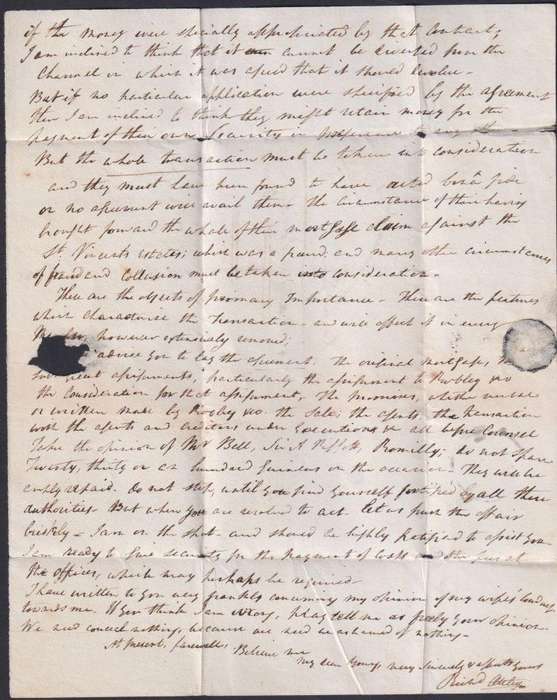 if the money were specially appropriated by that Contract;
I am inclined to think that it can cannot be diverted from the
Channel in which it was agreed that it should revolve -
But if no particular application were specified by the agreement
then I am inclined to think they might retain money for the
payment of their own Security in preference to any other
But the whole transaction must be taken into consideration
and they must have been found to have acted bonâ fide
or no agreement will avail them - The circumstance of their having
brought forward the whole of their mortgage claim against the
St Vincents estates; which was a fraud, and many other circumstances
of fraud and collusion must be taken into consideration -
These are the objects of primary Importance - These are the features
which characterise the transaction - and will affect it in every
however extensively removed;
advise you to lay the agreement, the original mortgage, the
assignments, particularly the assignment to Robley &co
the consideration for that assignment, the promises, whether verbal
or written made by Robley &co. the Sale; the agents, the transaction
with the agents and creditors under executions &c all before Counsel
Take the opinion of Mr Bell, Sir A Piggott, Romilly; do not spare
Twenty, thirty or an hundred guineas on the occasion. They will be
amply repaid. Do not stop, until you find yourself fortified by all these
authorities - But when you are resolved to act - let us push the affair
briskly - I am on the spot - and should be highly gratified to assist you
I am ready to give security for the payment of costs and the fees at
the offices, which may perhaps be required -
I have written to you very frankly concerning my opinion of my wife's conduct
towards me. If you think I am wrong, pray tell me as freely your opinion -
We need conceal nothing, because we need be ashamed of nothing -
At present, farewell, Believe me
my dear George very sincerely & affectly yours
Richd